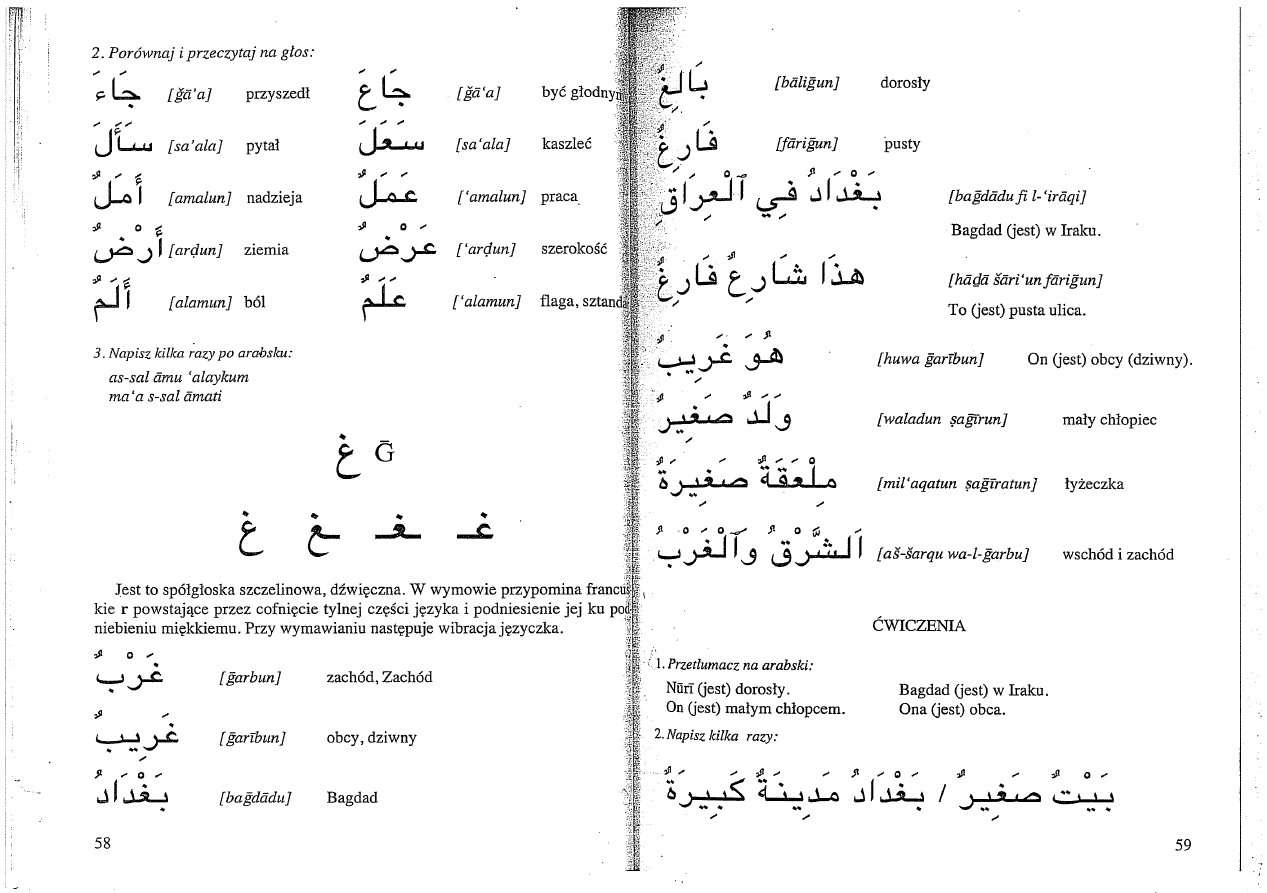 2. Porównaj i przeczytaj na głos:
جَاءَ [ğā’a] przyszedł جَاعَ [ğā‘a] być
سَأَلَ [sa’ala] pytał سَعَلَ [sa‘ala] kaszleć
أَمَلٌ [amalun] nadzieja عَمَلٌ [‘amalun] praca
أَرْضٌ [arḍun] ziemia عَرْضٌ [‘arḍun] szerokość
أَلَمٌ [alamun] ból عَلَمٌ [‘alamun] flaga,
3. Napisz kilka razy po arabsku:
as-sal āmu ‘alaykum
ma‘a s-sal āmati
غ Ḡ
غ ـغ ـغـ غـ
Jest to spółgłoska szczelinowa, dźwięczna. W wymowie przypomina
kie r powstające przez cofnięcie tylnej części języka i podniesienie jej ku
niebieniu miękkiemu. Przy wymawianiu następuje wibracja języczka.
غَرْبٌ [ḡarbun] zachód, Zachód
غَرِيبٌ [ḡarībun] obcy, dziwny
بَغْدَادُ [baḡdādu] Bagdad
58
بَالِغٌ [bāliḡun] dorosły
فَارِغٌ [fāriḡun] pusty
بَغْدَادُ فِي ٱلْعِرَاقِ [baḡdādu fi l-‘irāqi]
Bagdad (jest) w Iraku.
هذَا شَارِعٌ فَارِغٌ [hāḏā šāri‘un fāriḡun]
To (jest) pusta ulica.
هُوَ غَرِيبٌ [huwa ḡarībun] On (jest) obcy (dziwny).
وَلَدٌ صَغِيرٌ [waladun ṣaḡīrun] mały chłopiec
مِلْعَقَةٌ صَغِيرَةٌ [mil‘aqatun ṣaḡīratun] łyżeczka
اَلشَّرْقُ وَٱلْغَرْبُ [aš-šarqu wa-l-ḡarbu] wschód i zachód
ĆWICZENIA
1. Przetłumacz na arabski:
Nūrī (jest) dorosły. Bagdad (jest) w Iraku.
On (jest) małym chłopcem. Ona (jest) obca.
2. Napisz kilka razy:
بَيْتٌ صَغِيرٌ / بَغْدَادُ مَدِينَةٌ كَبِيرَةٌ
59